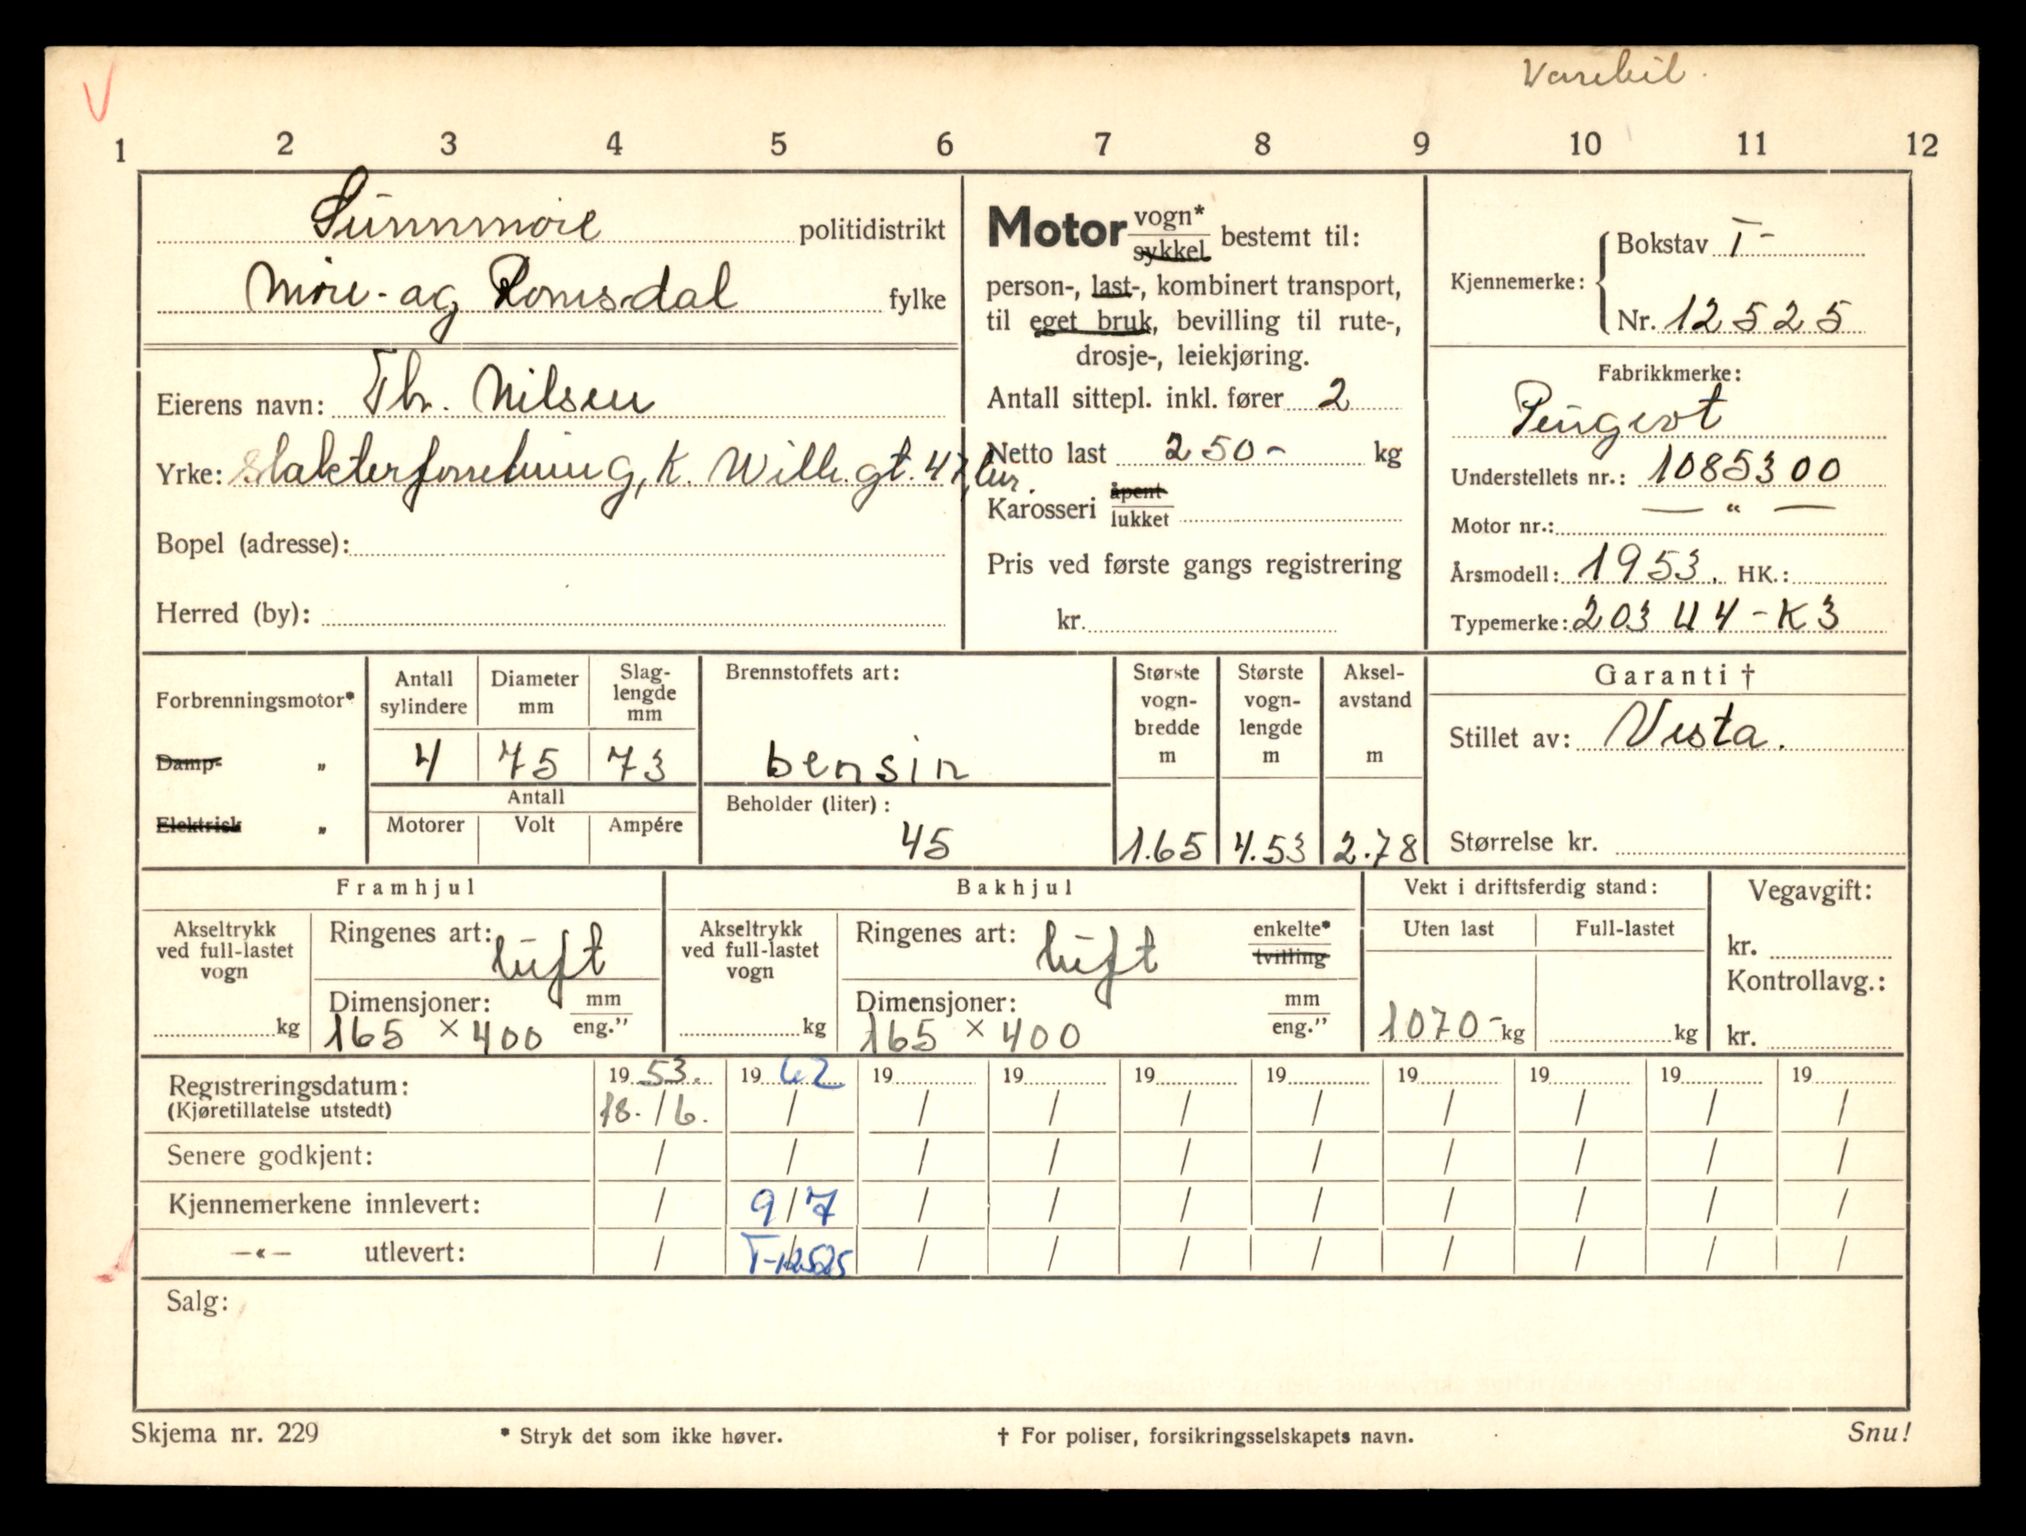 Varebil.
1 2 3 4 5 6 7 8 9 10 11 12
Sunnmøre politidistrikt
Møre- og Romsdal fylke
Eierens navn: Th. Nilsen
Yrke: Slakterforretning, K. Wilh. gt. 47,
Bopel (adresse):
Herred (by):
Motor vogn* sykkel bestemt til:
person-, last-, kombinert transport,
til eget bruk, bevilling til rute-,
drosje-, leiekjøring.
Antall sittepl. inkl. fører 2
Netto last 250- kg
Karosseri åpent lukket
Pris ved første gangs registrering
kr.
Kjennemerke: Bokstav T-
Nr. 12525
Fabrikkmerke:
Peugeot
Understellets nr.: 1085300
Motor nr.: — " —
Årsmodell: 1953. HK.:
Typemerke: 203 U4-K3
Forbrenningsmotor*
Damp- „
Elektrisk „
Antall sylindere
Diameter mm
Slaglengde mm
4 75 73
Antall
Motorer Volt Ampére
Brennstoffets art:
bensin
Beholder (liter):
45
Største vognbredde m
1.65
Største vognlengde m
4.53
Akselavstand m
2.78
Garanti †
Stillet av: Vesta.
Størrelse kr.
Framhjul
Akseltrykk ved full-lastet vogn
kg
Ringenes art: luft
Dimensjoner: mm eng."
165 × 400
Bakhjul
Akseltrykk ved full-lastet vogn
kg
Ringenes art: luft enkelte* tvilling
Dimensjoner: mm eng."
165 × 400
Vekt i driftsferdig stand:
Uten last Full-lastet
1070- kg kg
Vegavgift:
kr.
Kontrollavg.:
kr.
Registreringsdatum: 1953. 1962 19 19 19 19 19 19 19 19
(Kjøretillatelse utstedt) 18./6. / / / / / / / / /
Senere godkjent: / / / / / / / / / /
Kjennemerkene innlevert: / 9/7 / / / / / / / /
—«— utlevert: / T-12525 / / / / / / / /
Salg:
Skjema nr. 229 * Stryk det som ikke høver. † For poliser, forsikringsselskapets navn. Snu!